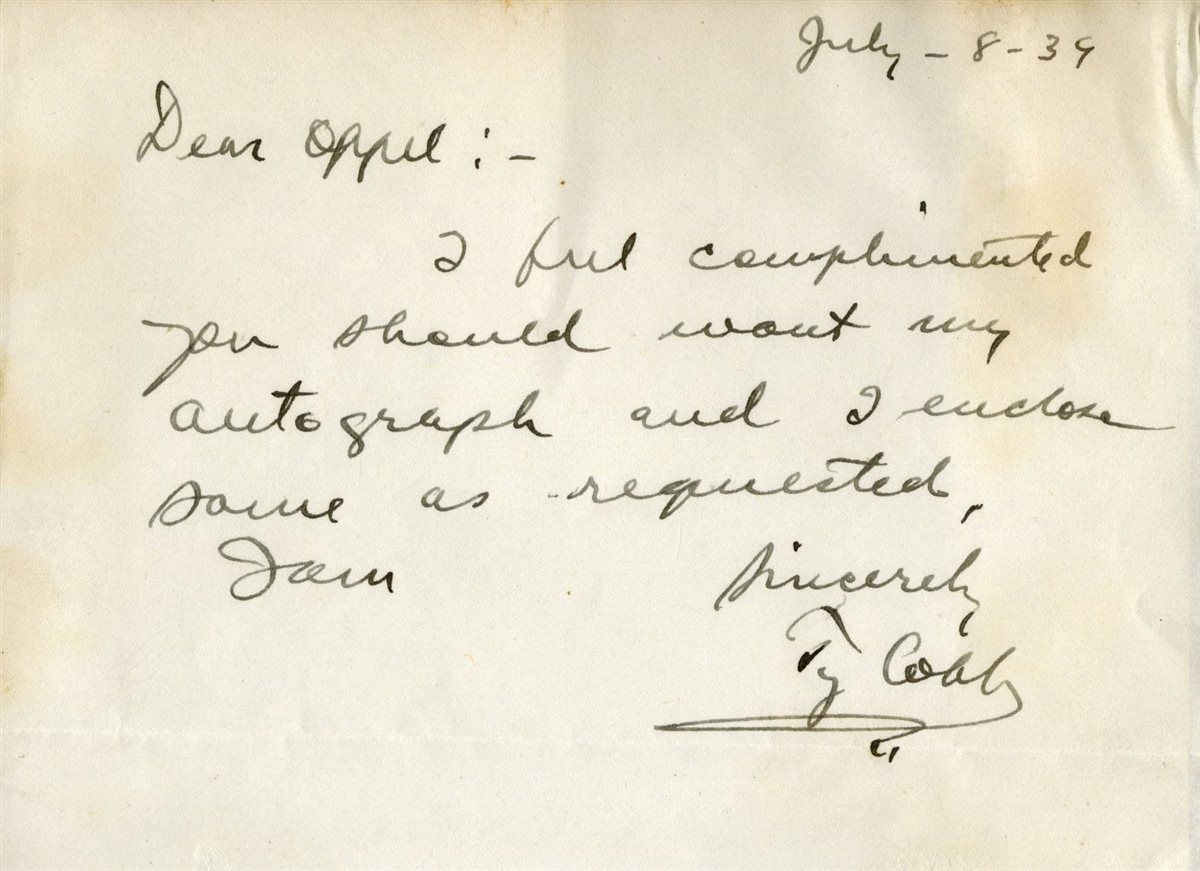 July - 8 - 39
Dear Oppel : -
I feel complimented
you should want my
autograph and I enclose
same as requested,
I am Sincerely
Ty Cobb